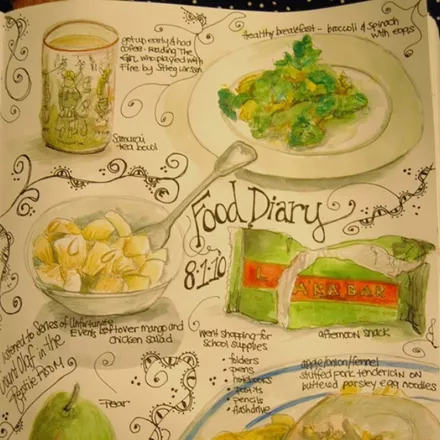 get up early & had
coffee - Reading The
Girl who played with
Fire by Stieg Larsson
Samurai
tea bowl
Healthy breakfast - broccoli & spinach
with eggs
Food Diary
8·1·10
LARABAR
afternoon snack
listened to Series of Unfortunate
Events
Count Olaf in the
Reptile Room
leftover mango and
chicken salad
Went shopping for
school supplies
• folders
• pens
• notebooks
• pencils
• flashdrive
apple/onion/fennel
stuffed pork tenderloin on
buttered parsley egg noodles
Pear